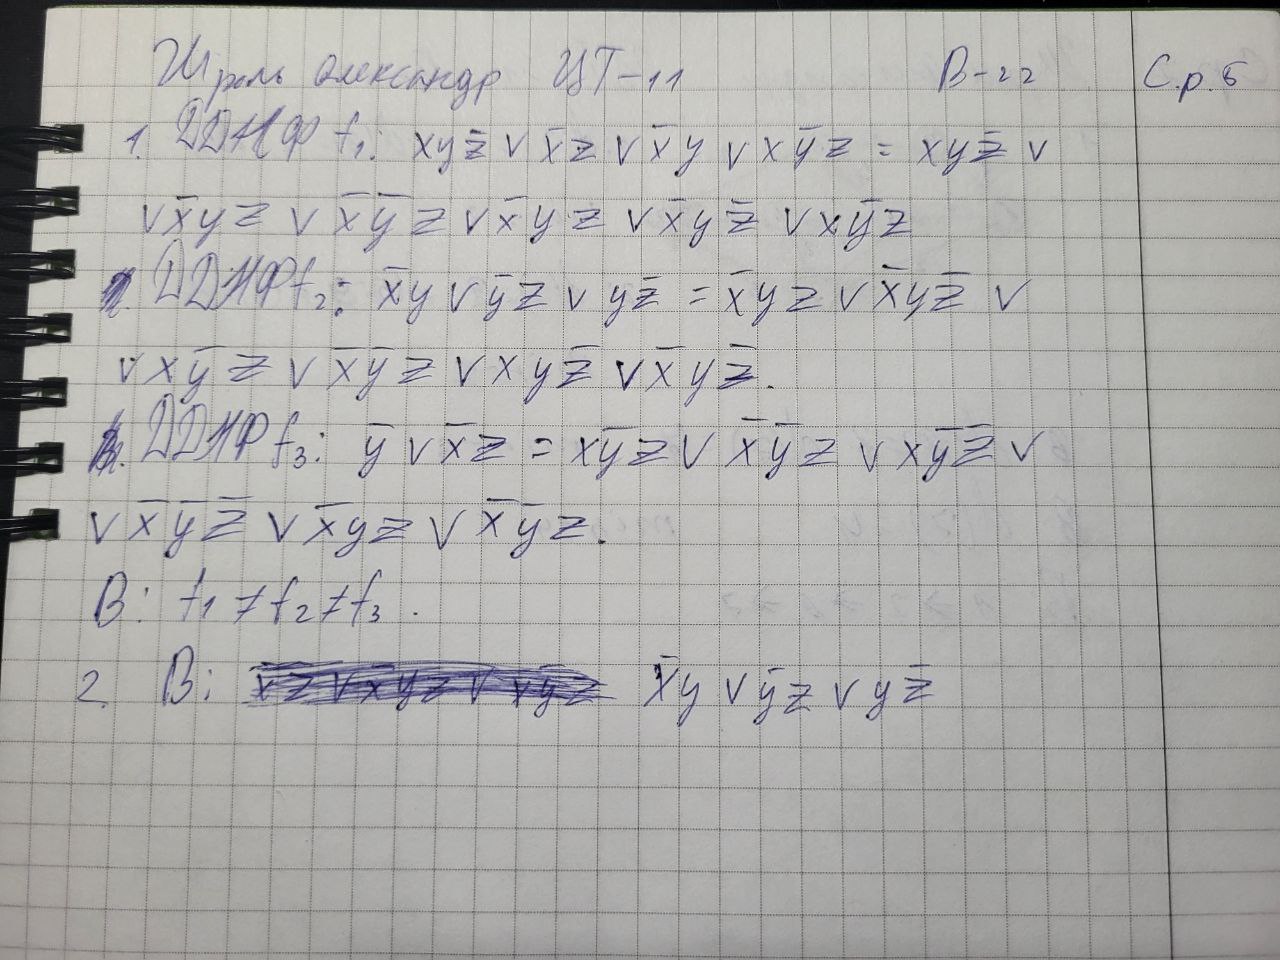 Шроль Олександр ЦТ-11 В-22 С.р.6
1. ДДНФ f₁: xyz̄ ∨ x̄z ∨ x̄y ∨ xȳz = xyz̄ ∨
∨ x̄yz ∨ x̄ȳz ∨ x̄yz ∨ x̄yz̄ ∨ xȳz
ДДНФ f₂: x̄y ∨ ȳz ∨ yz̄ = x̄yz ∨ x̄yz̄ ∨
∨ xȳz ∨ x̄ȳz ∨ xyz̄ ∨ x̄yz̄.
ДДНФ f₃: ȳ ∨ x̄z = xȳz ∨ x̄ȳz ∨ xȳz̄ ∨
∨ x̄ȳz̄ ∨ x̄yz ∨ x̄ȳz.
В: f₁ ≠ f₂ ≠ f₃.
2. В: x̄y ∨ ȳz ∨ yz̄